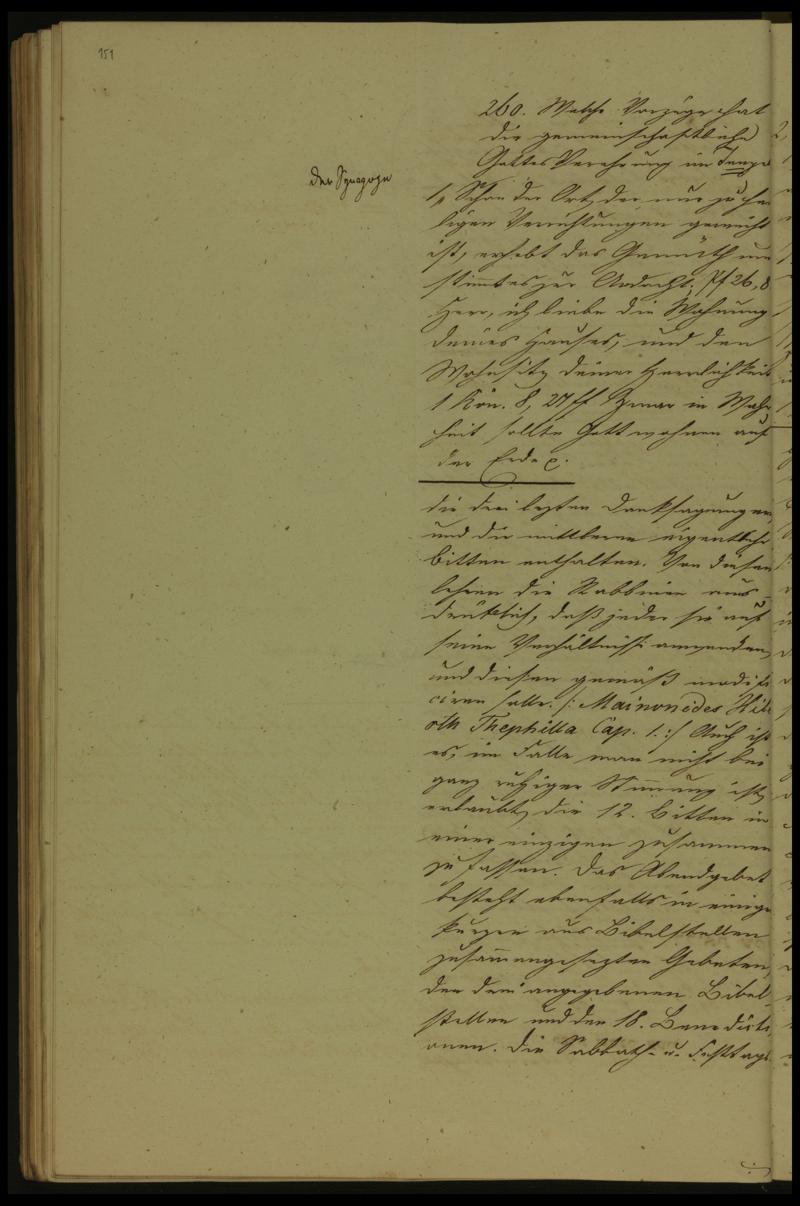 151
260. Welche Vorzüge hat
die gemeinschaftliche
Gottes Verehrung im Tempe
der Synagoge
1, Schon der Ort, der nur zu hei
ligen Verrichtungen geweiht
ist, erhebt das Gemüth um
stimmt es zur Andacht; Pf 26, 8
Herr, ich liebe die Wohnung
deines Hauses, und den
Wohnsitz deiner Herrlichkeit
1 Kön. 8, 27 ff Zwar in Wahr
heit sollte Gott wohnen auf
der Erde
die drei lezten Danksagungen
und die mittleren eigentliche
Bitten enthalten. Von diesen
lehren die Rabbinen aus-
drüklich, daß jeder sie auf
seine Verhältnisse anwenden
und diesen gemäß modifi
ciren solle. /: Mainonides Hil
oth Thephilla Cap. 1. :/ Auch ist
es, im Falle man nicht bei
ganz ruhiger Stimmung ist,
erlaubt, die 12. Bitten in
einer einzigen zusammen
zu fassen. Das Abendgebet
besteht ebenfalls in einige
kurzen aus Bibelstellen
zusam̄engesezten Gebeten,
den drei angegebenen Bibel-
stellen und den 18. Benedicti
onen. Die Sabbath- u. Festtags